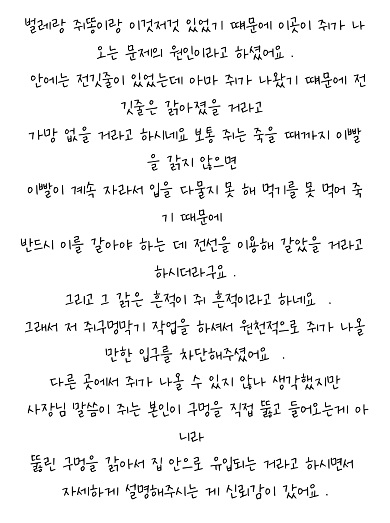 벌레랑 쥐똥이랑 이것저것 있었기 떄문에 이곳이 쥐가 나
오는 문제의 원인이라고 하셨어요 .
안에는 전깃줄이 있었는데 아마 쥐가 나왔기 떄문에 전
깃줄은 갉아졌을 거라고
가망 없을 거라고 하시네요 보통 쥐는 죽을 때까지 이빨
을 갉지 않으면
이빨이 계속 자라서 입을 다물지 못 해 먹기를 못 먹어 죽
기 때문에
반드시 이를 갈아야 하는 데 전선을 이용해 갈았을 거라고
하시더라구요 .
그리고 그 갉은 흔적이 쥐 흔적이라고 하네요 .
그래서 저 쥐구멍막기 작업을 하셔서 원천적으로 쥐가 나올
만한 입구를 차단해주셨어요 .
다른 곳에서 쥐가 나올 수 있지 않나 생각했지만
사장님 말씀이 쥐는 본인이 구멍을 직접 뚫고 들어오는게 아
니라
뚫린 구멍을 갉아서 집 안으로 유입되는 거라고 하시면서
자세하게 설명해주시는 게 신뢰감이 갔어요 .